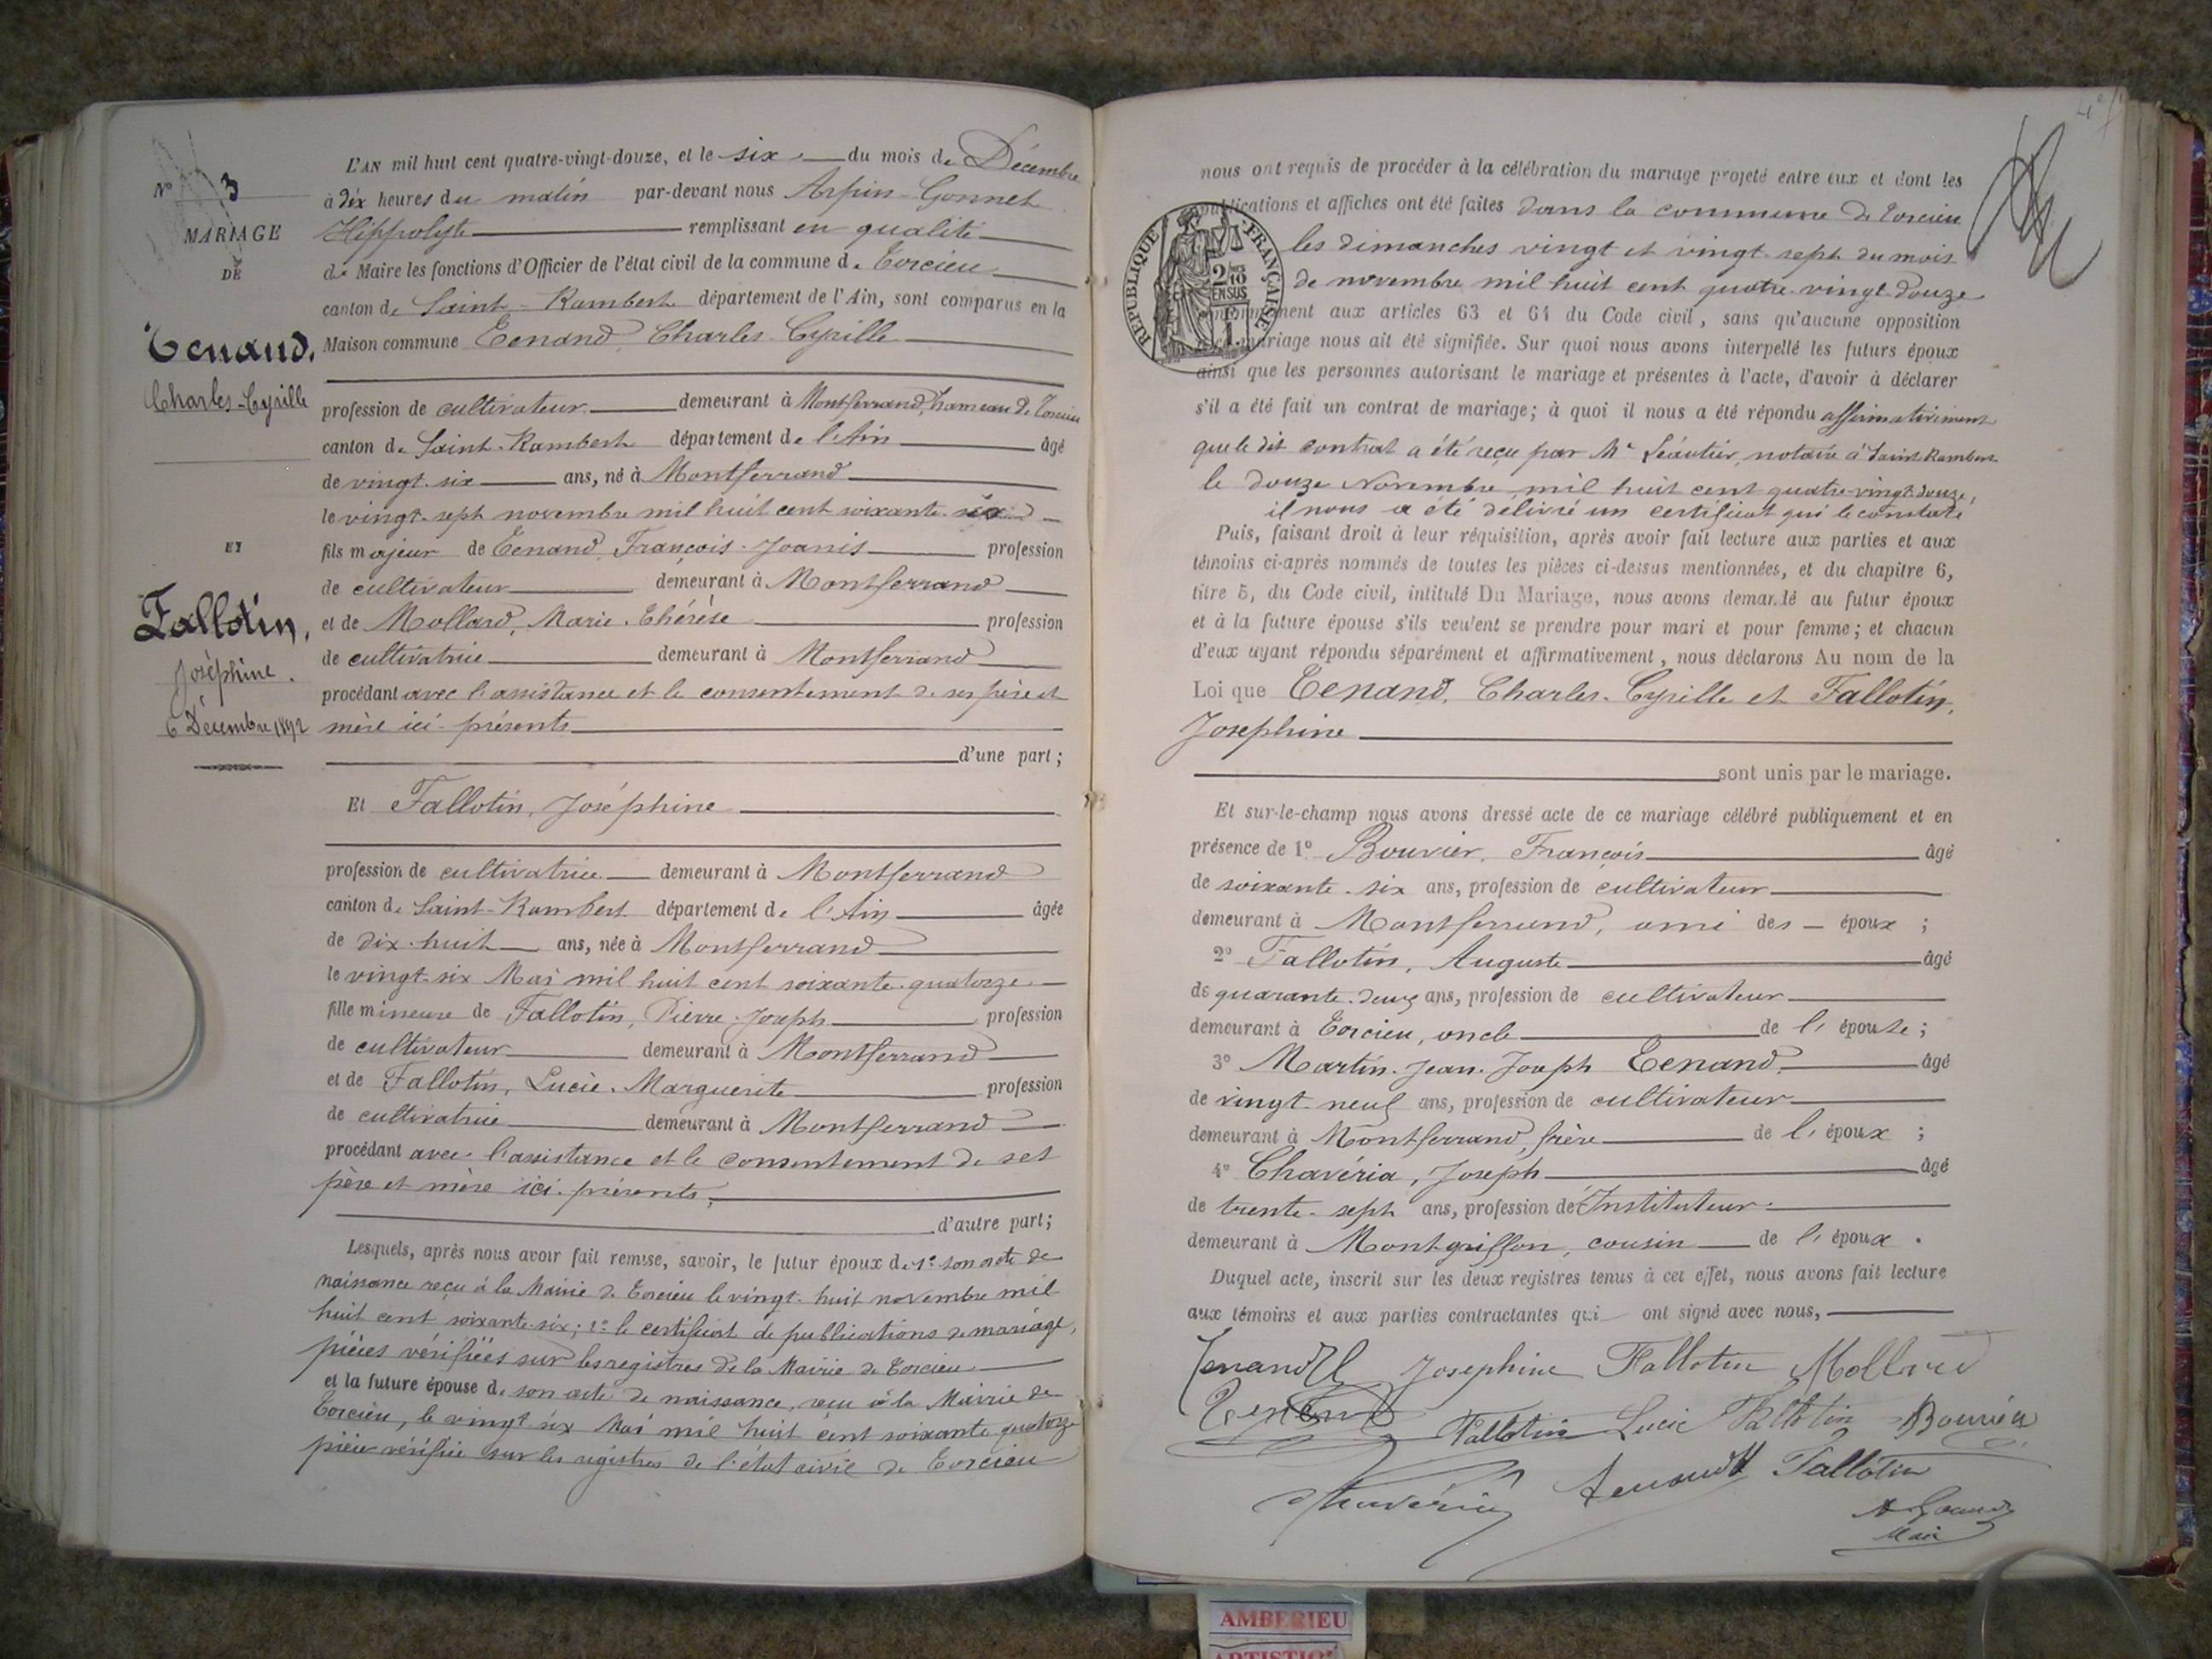 N° 3
MARIAGE
DE
Tenand,
Charles-Cyrille
ET
Fallotin,
Joséphine.
6 Décembre 1892
L'AN mil huit cent quatre-vingt-douze, et le six du mois de Décembre
à dix heures du matin par-devant nous Arpin-Gonnet
Hippolyte remplissant en qualité
de Maire les fonctions d'Officier de l'état civil de la commune de Torcieu
canton de Saint-Rambert département de l'Ain, sont comparus en la
Maison commune Tenand, Charles-Cyrille
profession de cultivateur demeurant à Montferrand, hameau de Torcieu
canton de Saint-Rambert département de l'Ain âgé
de vingt-six ans, né à Montferrand
le vingt-sept novembre mil huit cent soixante-six
fils majeur de Tenand, François-Joanis profession
de cultivateur demeurant à Montferrand
et de Mollard, Marie-Thérèse profession
de cultivatrice demeurant à Montferrand
procédant avec l'assistance et le consentement de ses père et
mère ici présents
d'une part;
Et Fallotin, Joséphine
profession de cultivatrice demeurant à Montferrand
canton de Saint-Rambert département de l'Ain âgée
de dix-huit ans, née à Montferrand
le vingt-six Mai mil huit cent soixante-quatorze
fille mineure de Fallotin, Pierre-Joseph profession
de cultivateur demeurant à Montferrand
et de Fallotin, Lucie-Marguerite profession
de cultivatrice demeurant à Montferrand
procédant avec l'assistance et le consentement de ses
père et mère ici présents,
d'autre part;
Lesquels, après nous avoir fait remise, savoir, le futur époux de 1° son acte de
naissance reçu à la Mairie de Torcieu le vingt-huit novembre mil
huit cent soixante-six; 2° le certificat de publications de mariage,
pièces vérifiées sur les registres de la Mairie de Torcieu
et la future épouse de son acte de naissance, reçu à la Mairie de
Torcieu, le vingt six Mai mil huit cent soixante quatorze
pièce vérifiée sur les registres de l'état civil de Torcieu
nous ont requis de procéder à la célébration du mariage projeté entre eux et dont les
publications et affiches ont été faites dans la commune de Torcieu
les dimanches vingt et vingt-sept du mois
de novembre mil huit cent quatre-vingt-douze
conformément aux articles 63 et 64 du Code civil, sans qu'aucune opposition
mariage nous ait été signifiée. Sur quoi nous avons interpellé les futurs époux
ainsi que les personnes autorisant le mariage et présentes à l'acte, d'avoir à déclarer
s'il a été fait un contrat de mariage; à quoi il nous a été répondu affirmativement
que le dit contrat a été reçu par Me Léautier, notaire à Saint Rambert
le douze Novembre mil huit cent quatre-vingt-douze,
il nous a été délivré un certificat qui le constate
Puis, faisant droit à leur réquisition, après avoir fait lecture aux parties et aux
témoins ci-après nommés de toutes les pièces ci-dessus mentionnées, et du chapitre 6,
titre 5, du Code civil, intitulé Du Mariage, nous avons demandé au futur époux
et à la future épouse s'ils veulent se prendre pour mari et pour femme; et chacun
d'eux ayant répondu séparément et affirmativement, nous déclarons Au nom de la
Loi que Tenand, Charles-Cyrille et Fallotin,
Josephine
sont unis par le mariage.
Et sur-le-champ nous avons dressé acte de ce mariage célébré publiquement et en
présence de 1° Bouvier, François âgé
de soixante-six ans, profession de cultivateur
demeurant à Montferrand, ami des époux;
2° Fallotin, Auguste âgé
de quarante-deux ans, profession de cultivateur
demeurant à Torcieu, oncle de l'épouse;
3° Martin-Jean-Joseph Tenand âgé
de vingt-neuf ans, profession de cultivateur
demeurant à Montferrand, frère de l'époux;
4° Chavéria, Joseph âgé
de trente-sept ans, profession de Instituteur
demeurant à Montgriffon, cousin de l'époux.
Duquel acte, inscrit sur les deux registres tenus à cet effet, nous avons fait lecture
aux témoins et aux parties contractantes qui ont signé avec nous,
Tenand Josephine Fallotin Mollard
Tenand Fallotin Lucie Fallotin Bouvier
Chavéria Tenand Fallotin
Maire
REPUBLIQUE FRANÇAISE
2/10 EN SUS
AMBERIEU
ARTISTIQUE